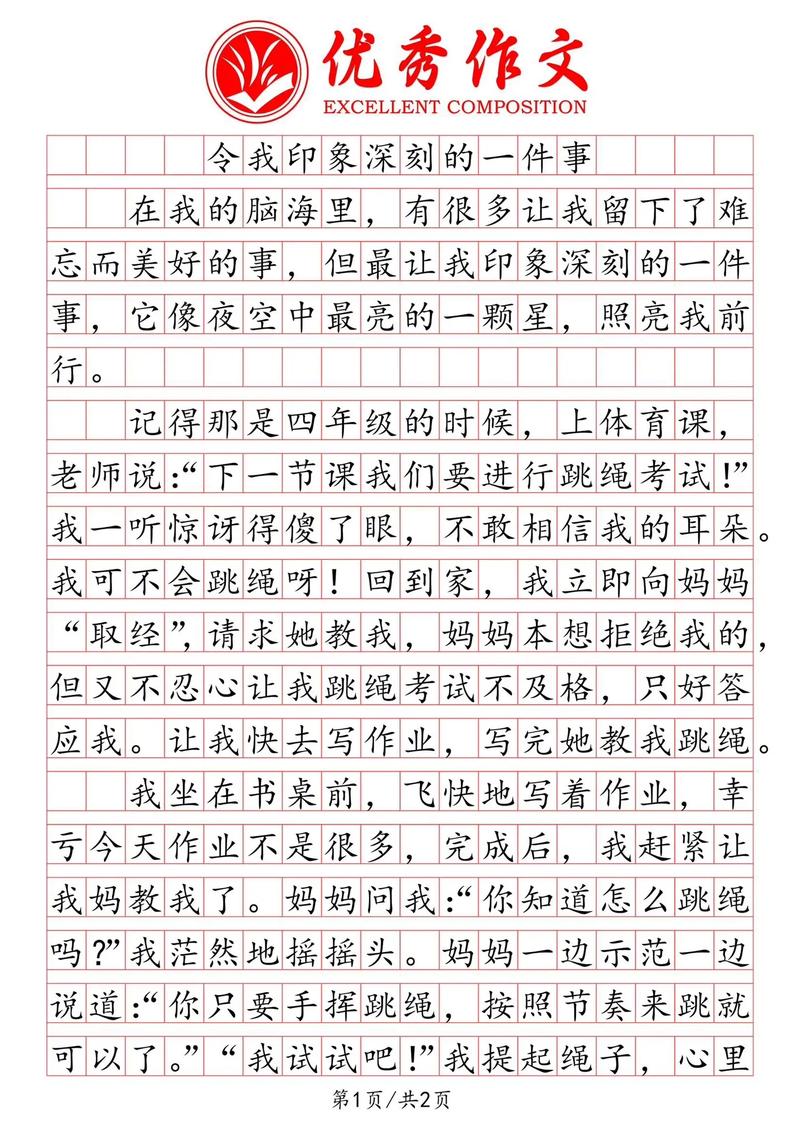 优秀作文
EXCELLENT COMPOSITION
令我印象深刻的一件事
在我的脑海里，有很多让我留下了难
忘而美好的事，但最让我印象深刻的一件
事，它像夜空中最亮的一颗星，照亮我前
行。
记得那是四年级的时候，上体育课，
老师说：“下一节课我们要进行跳绳考试！”
我一听惊讶得傻了眼，不敢相信我的耳朵。
我可不会跳绳呀！回到家，我立即向妈妈
“取经”，请求她教我，妈妈本想拒绝我的，
但又不忍心让我跳绳考试不及格，只好答
应我。让我快去写作业，写完她教我跳绳。
我坐在书桌前，飞快地写着作业，幸
亏今天作业不是很多，完成后，我赶紧让
我妈教我了。妈妈问我：“你知道怎么跳绳
吗？”我茫然地摇摇头。妈妈一边示范一边
说道：“你只要手挥跳绳，按照节奏来跳就
可以了。”“我试试吧！”我提起绳子，心里
第1页/共2页